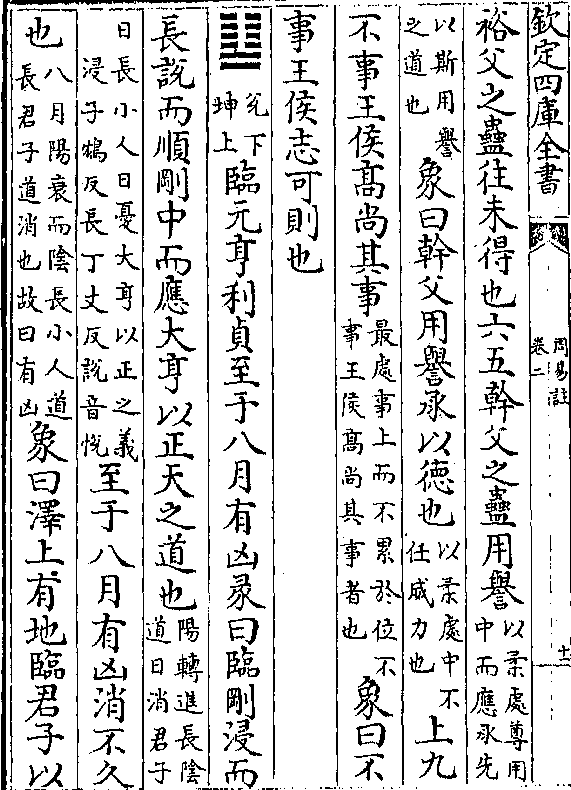 欽定四庫全書
周易註
卷二
十二
裕父之蠱往未得也六五幹父之蠱用譽以柔處尊用中而應承先
以斯用譽之道也象曰幹父用譽承以德也以柔處中不任威力也上九
不事王侯髙尚其事最處事上而不累於位不事王侯髙尚其事者也象曰不
事王侯志可則也
兊下坤上臨元亨利貞至于八月有凶彖曰臨剛浸而
長説而順剛中而應大亨以正天之道也陽轉進長陰道日消君子
日長小人日憂大亨以正之義浸子鴆反長丁丈反説音悅至于八月有凶消不久
也八月陽衰而陰長小人道長君子道消也故曰有凶象曰澤上有地臨君子以